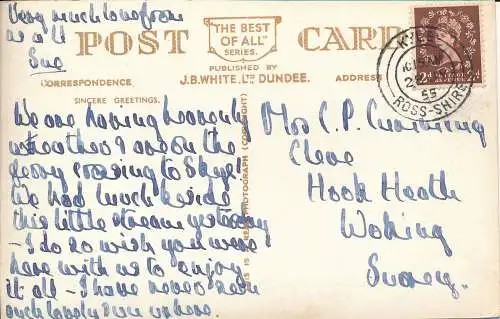 Very much love from
us all
Sue
POST CARD
"THE BEST
OF ALL"
SERIES.
PUBLISHED BY
J.B. WHITE, LTD DUNDEE.
CORRESPONDENCE
ADDRESS
SINCERE GREETINGS.
THIS IS A REAL PHOTOGRAPH (COPYRIGHT)
We are having heavenly
weather & are on the
ferry crossing to Skye!
We had lunch beside
this little stream yesterday
- I do so wish you were
here with us to enjoy
it all - I have never seen
such lovely
Mrs C. P.
Cleve
Hook Heath
Woking
Surrey.
KYLE
55
ROSS-SHIRE
2d 2d